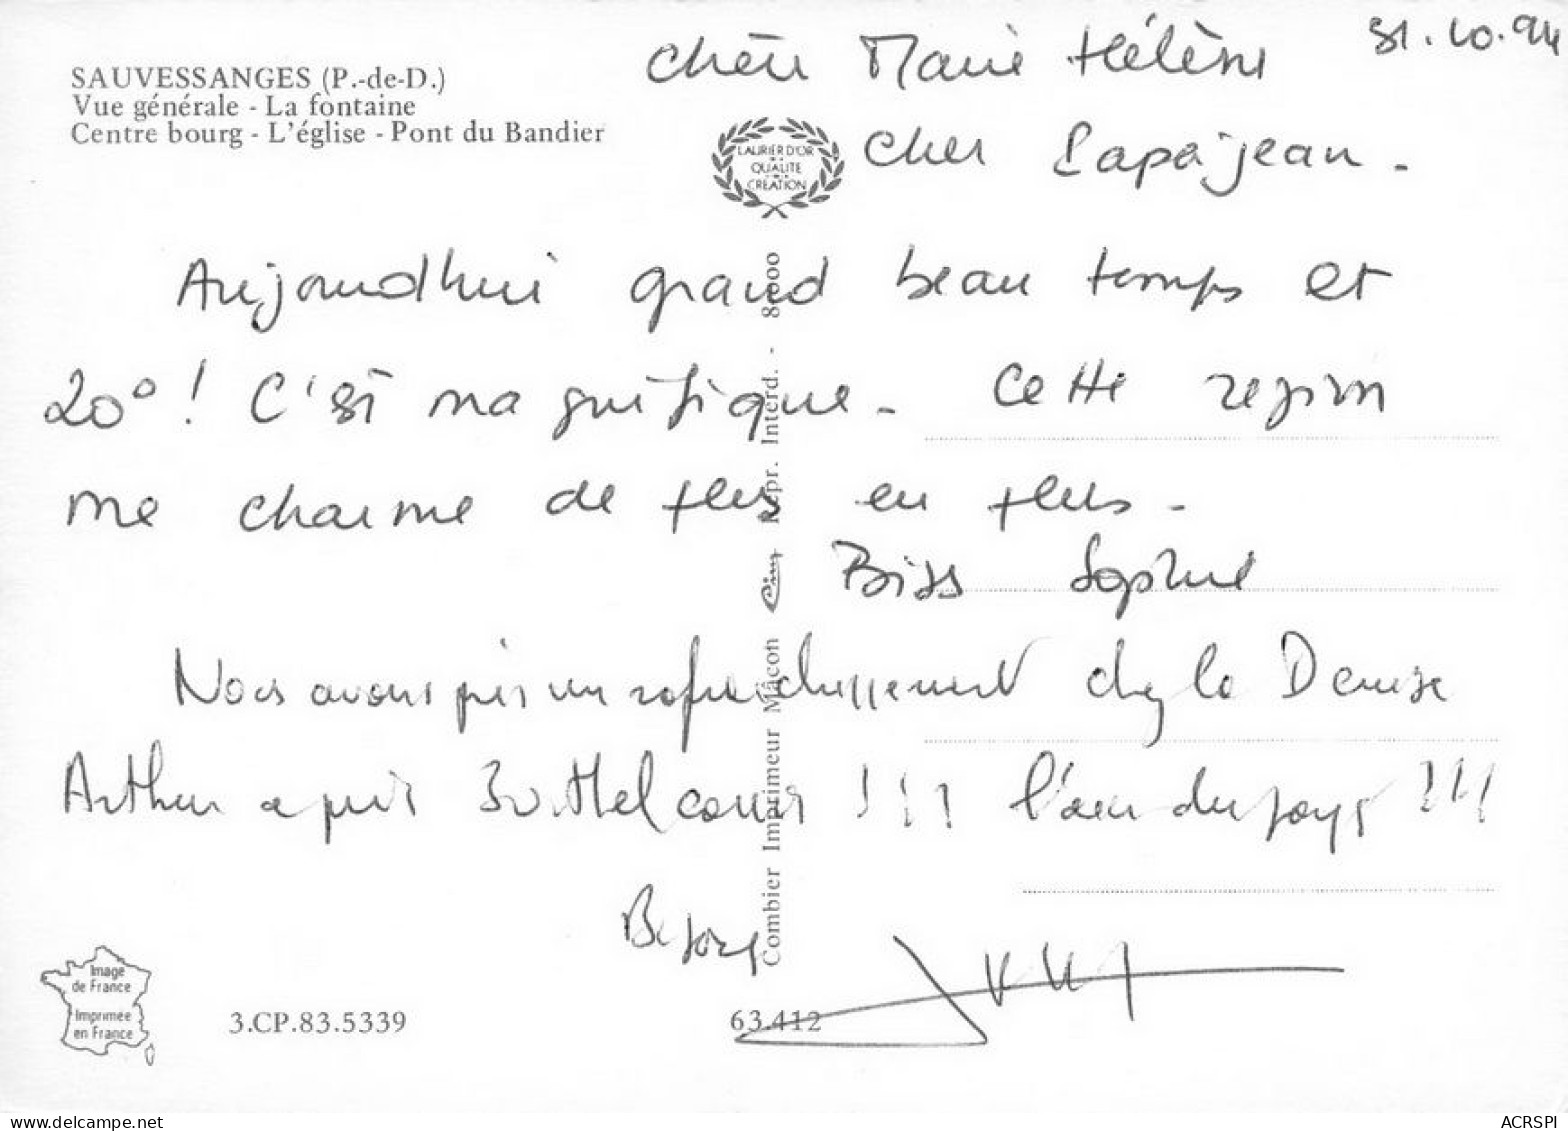 SAUVESSANGES (P.-de-D.)
Vue générale - La fontaine
Centre bourg - L'église - Pont du Bandier
31.10.94
Chère Marie Hélène
Cher Papajean -
LAURIER D'OR
QUALITE
CREATION
Aujourd'hui grand beau temps et
20° ! C'est magnifique - Cette region
me charme de plus en plus -
Bises Sophie
Nous avons pris un rafraichissement chez la Denise
Arthur a pris !!! l'air du pays !!!
Bisous
Combier Imprimeur Mâcon Cim Repr. Interd. - 8.000
Image
de France
Imprimée
en France
3.CP.83.5339
63.412
www.delcampe.net
ACRSPI